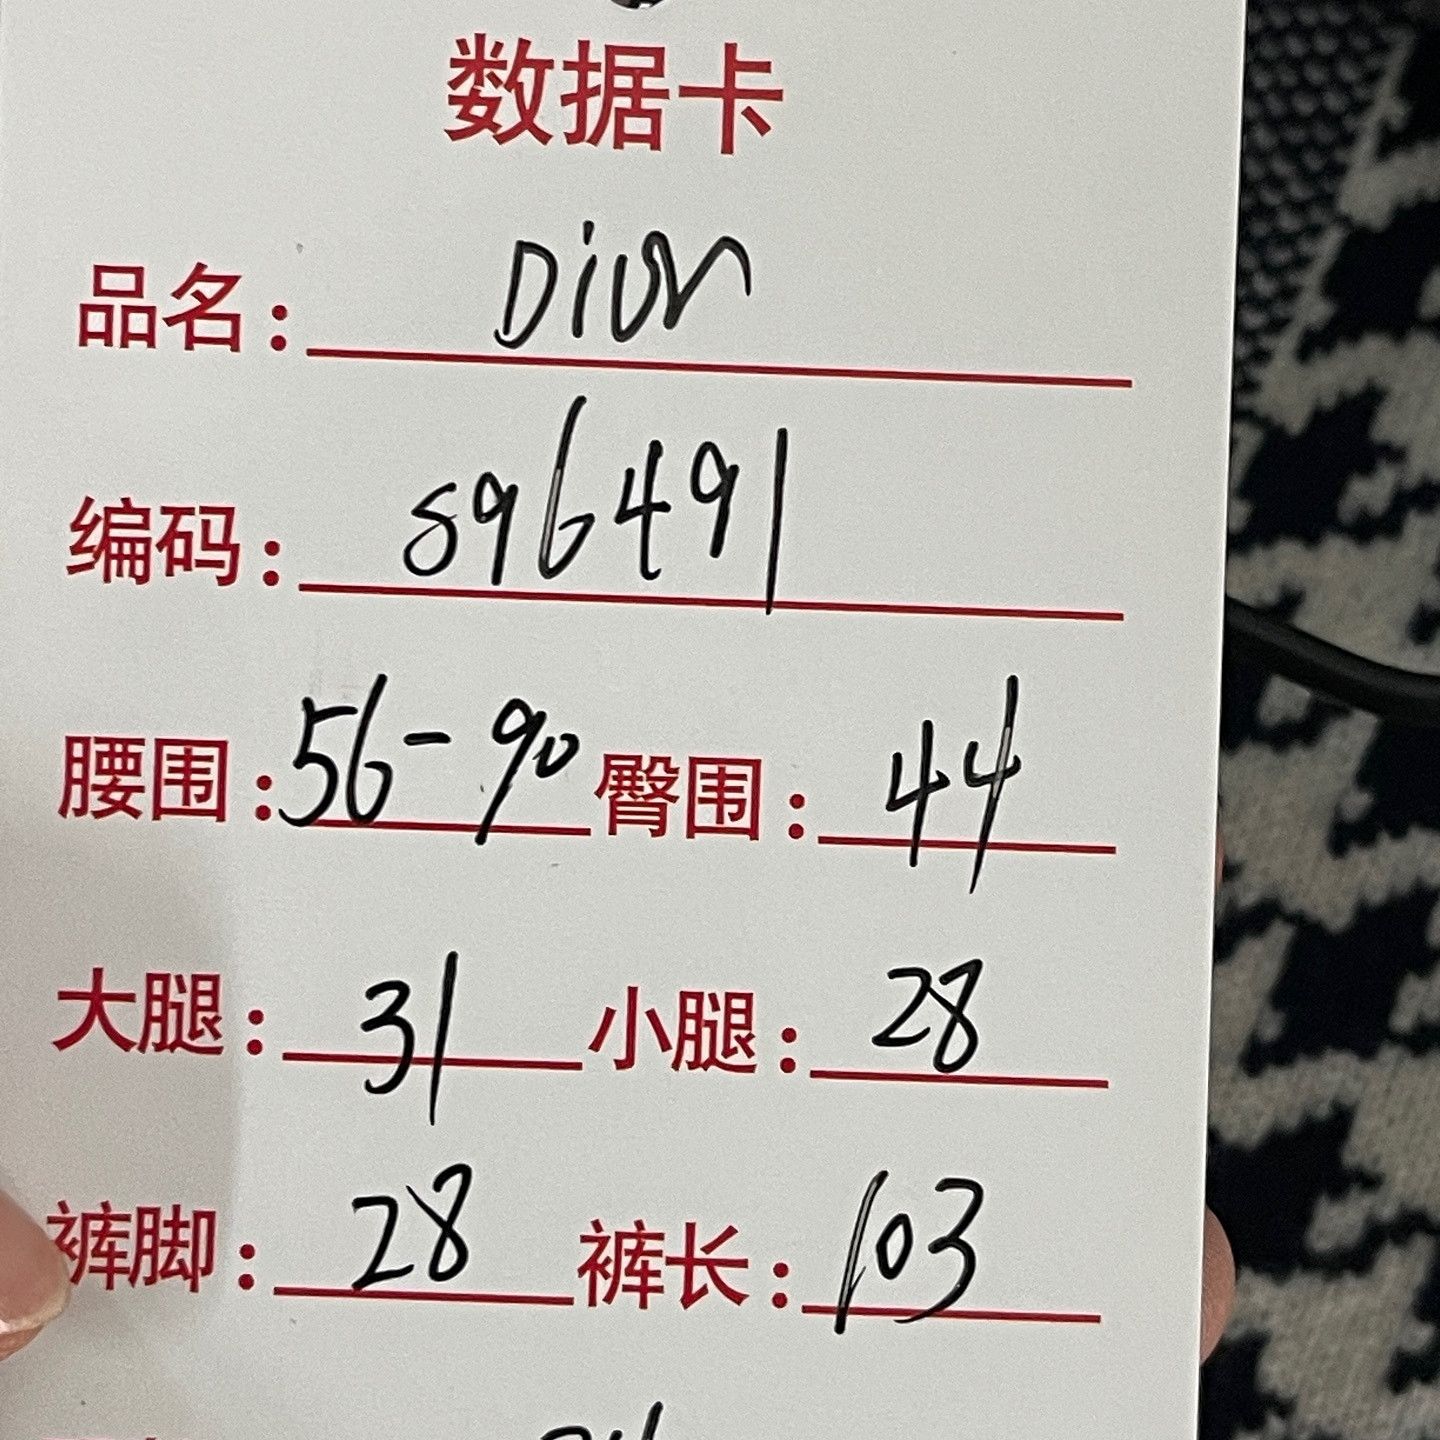 数据卡
品名: Dior
编码: S96491
腰围: 56-90 臀围: 44
大腿: 31 小腿: 28
裤脚: 28 裤长: 103